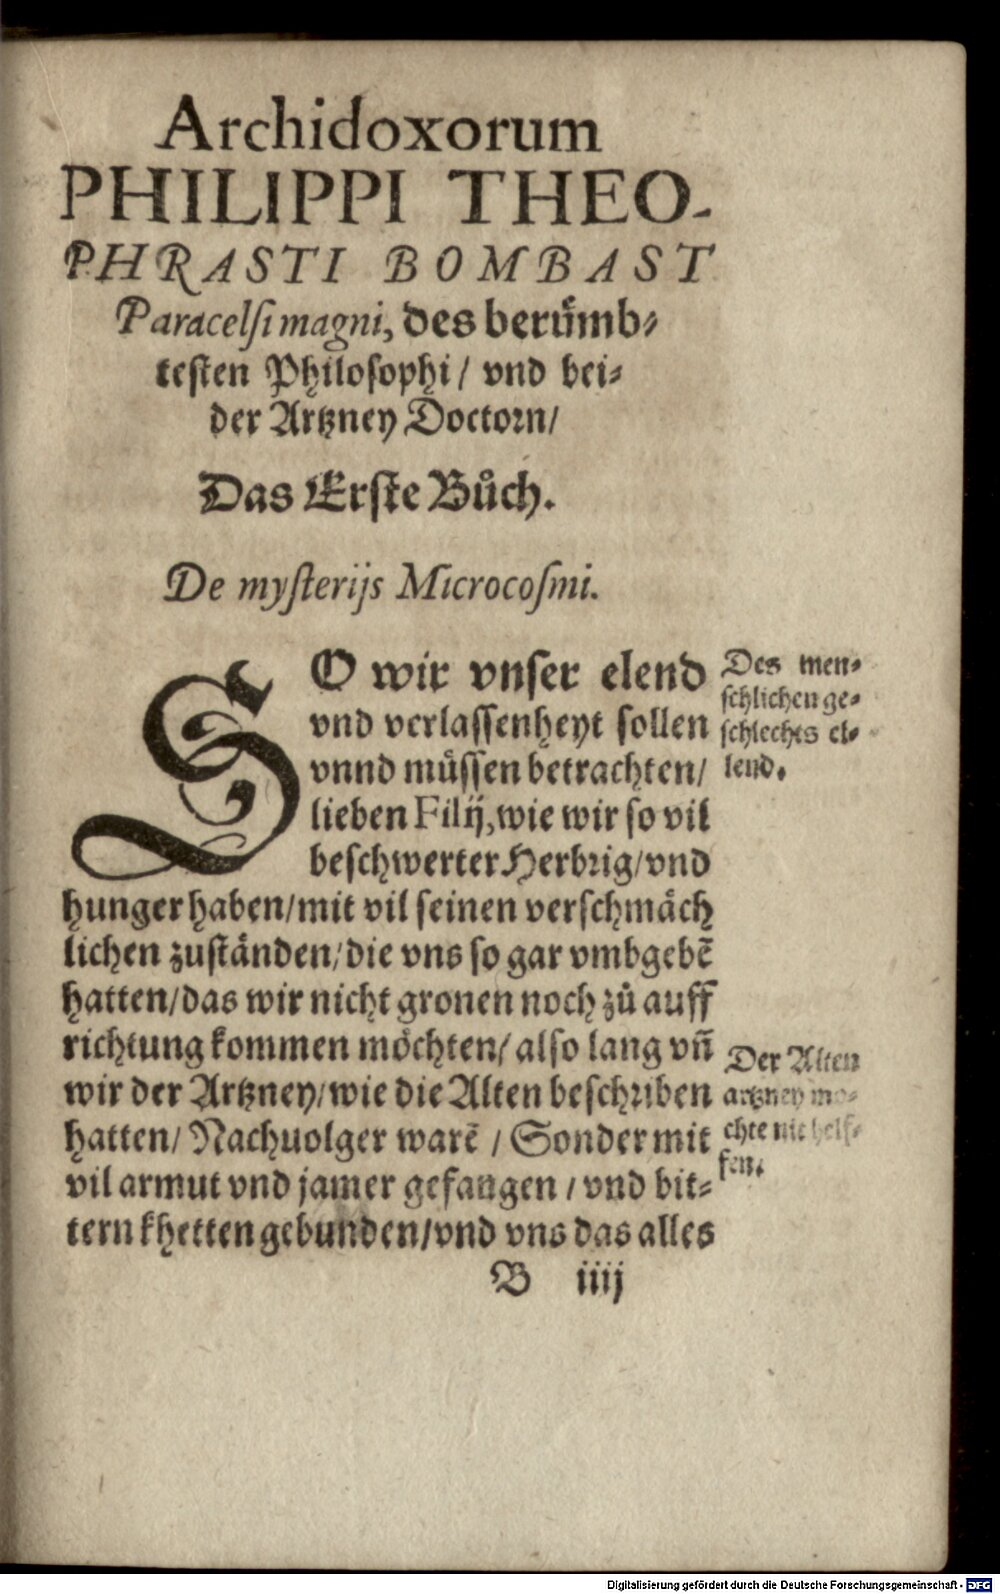 Archidoxorum
PHILIPPI THEO-
PHRASTI BOMBAST
Paracelsi magni, des berümb⸗
testen Philosophi/ vnd bei⸗
der Artzney Doctorn/
Das Erste Bůch.
De mysterijs Microcosmi.
SO wir vnser elend
vnd verlassenheyt sollen
vnnd müssen betrachten/
lieben Filij, wie wir so vil
beschwerter Herbrig/ vnd
hunger haben/ mit vil seinen verschmäch
lichen zuständen/ die vns so gar vmbgebẽ
hatten/ das wir nicht gronen noch zů auff
richtung kommen möchten/ also lang vñ
wir der Artzney/ wie die Alten beschriben
hatten/ Nachuolger warẽ / Sonder mit
vil armut vnd jamer gefangen / vnd bit⸗
tern khetten gebunden/ vnd vns das alles
B iiij
Des men⸗
schlichen ge⸗
schlechts el⸗
lend.
Der Alten
artzney mo⸗
chte nit helf⸗
fen.
Digitalisierung gefördert durch die Deutsche Forschungsgemeinschaft - DFG